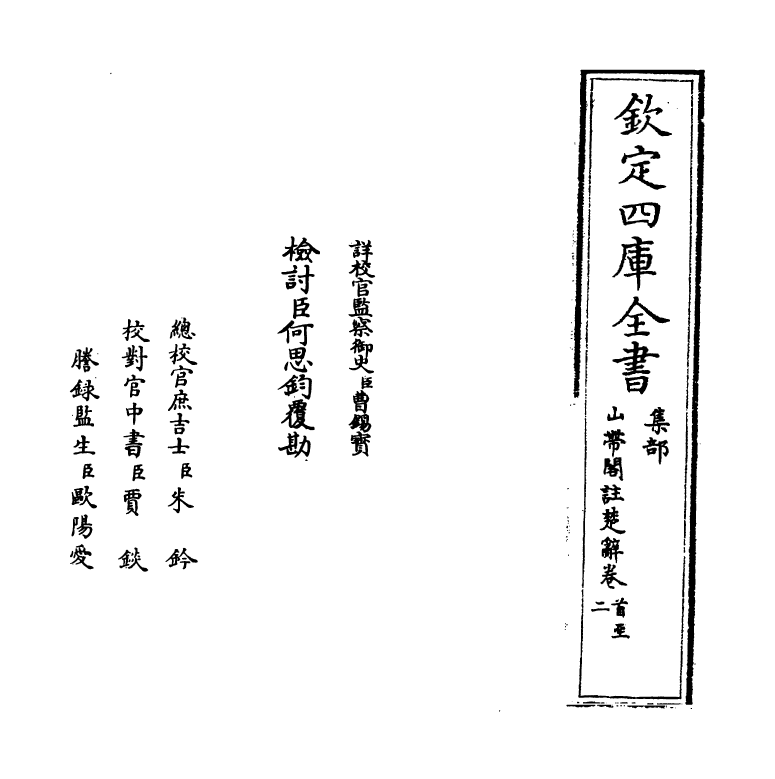 欽定四庫全書
集部
山帶閣註楚辭卷首至二
詳校官監察御史臣曹錫寳
檢討臣何思鈞覆勘
總校官庶吉士臣朱鈐
校對官中書臣賈錟
謄録監生臣歐陽愛